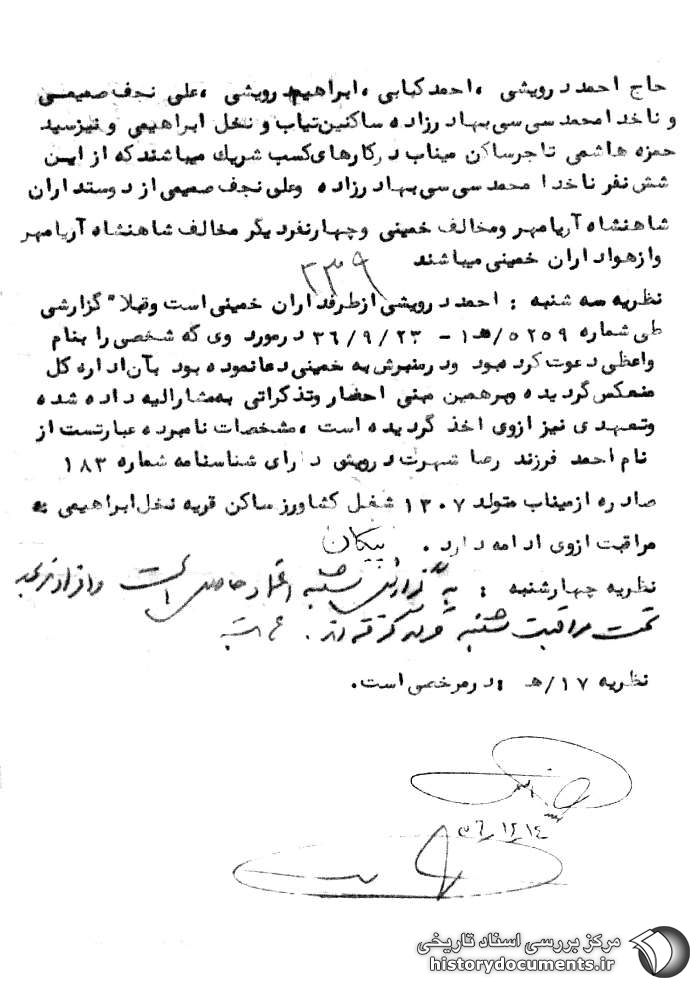 حاج احمد درویشی ،احمد کبابی ،ابراهیم درویشی ،علی نجف صمیمی
و ناخدا محمد سی سی بهادرزاده ساکنین تیاب و نخل ابراهیمی و نیز سید
حمزه هاشمی تاجر ساکن میناب در کارهای کسب شریک میباشند که از این
شش نفر ناخدا محمد سی سی بهادرزاده وعلی نجف صمیمی از دوستداران
شاهنشاه آریامهر ومخالف خمینی وچهارنفر دیگر مخالف شاهنشاه آریامهر
وازهواداران خمینی میباشند
۳۳۹
نظریه سه شنبه : احمد درویشی ازطرفداران خمینی است وقبلا" گزارشی
طی شماره ۵۲۵۹/هـ۱ - ۳۶/۹/۲۳ درمورد وی که شخصی را بنام
واعظی دعوت کرده بود ودرمنبرش به خمینی دعا نموده بود بآن اداره کل
منعکس گردیده وبرهمین مبنی احضار وتذکراتی به مشارالیه داده شده
وتعهدی نیز ازوی اخذ گردیده است ،مشخصات نامبرده عبارتست از
نام احمد فرزند رضا شهرت درویشی دارای شناسنامه شماره ۱۸۳
صادره ازمیناب متولد ۱۳۰۷ شغل کشاورز ساکن قریه نخل ابراهیمی به
مراقبت ازوی ادامه دارد . پیکان
نظریه چهارشنبه : به گزارش شنبه اعتماد حاصل است وافراد
تحت مراقبت شنبه قرار گرفته اند .
نظریه ۱۷/هـ :درمرخصی است.
۳۶/۱۲/۱٤
مرکز بررسی اسناد تاریخی
historydocuments.ir